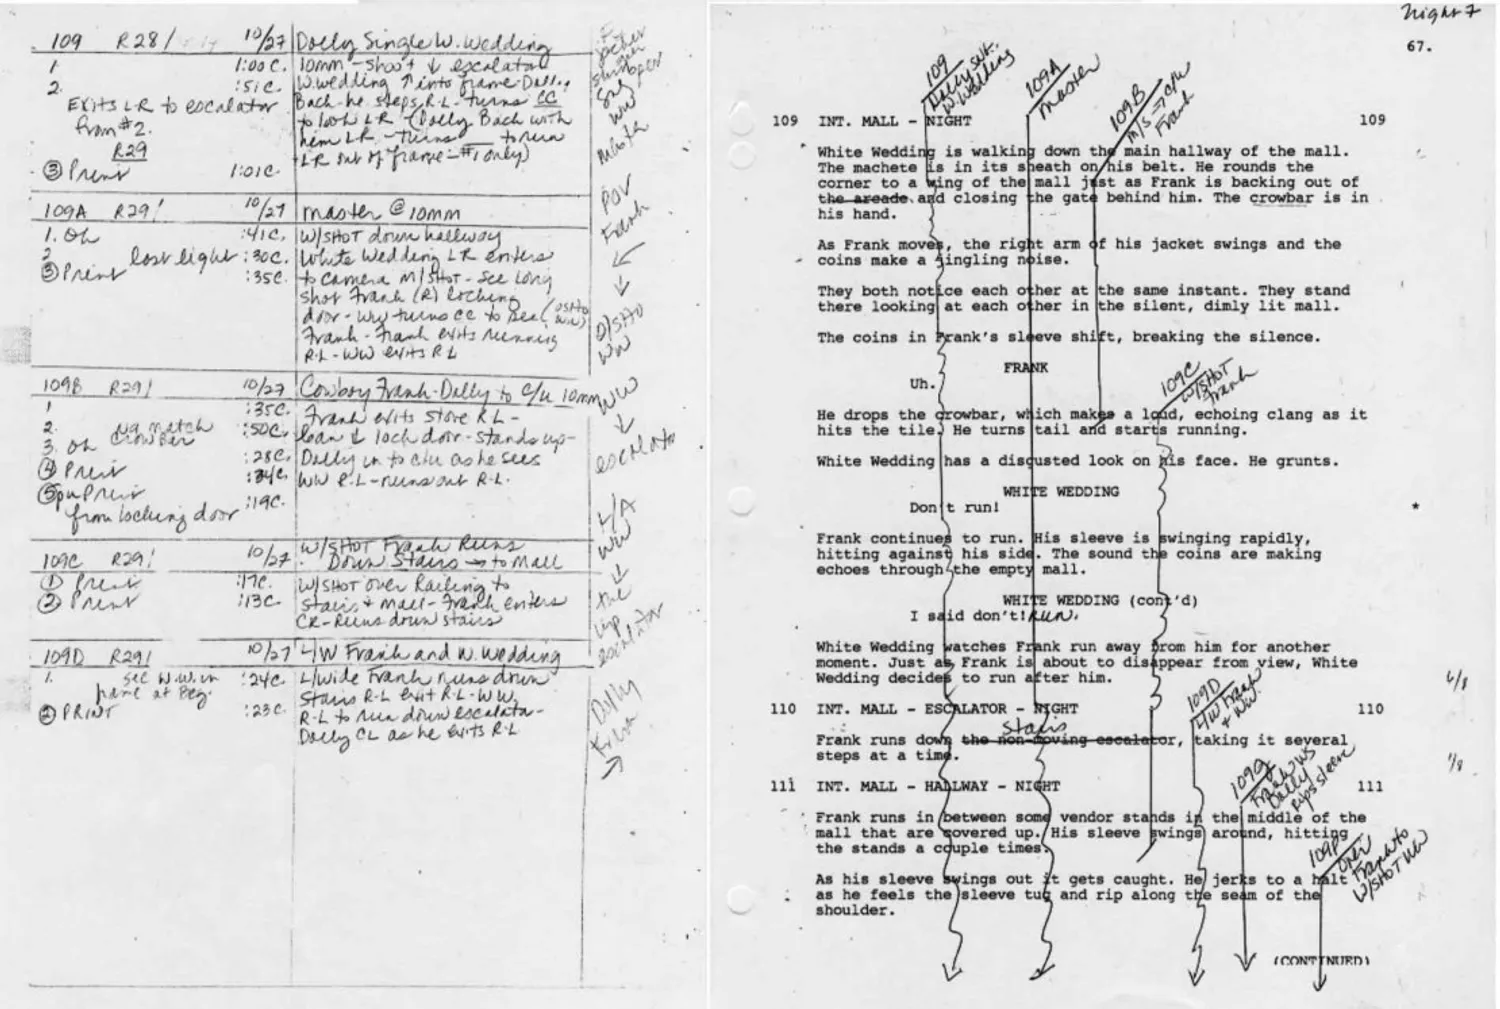 109 R28/ 10/27 Dolly Single W. Wedding
1. 1:00 C. 10mm - shoot ↓ escalator
2. :51 C. W. Wedding ↑ into frame - Dolly
Exits L-R to escalator Back - he steps R-L - turns CC
from #2. to look L-R - (Dolly Back with
R29 him L-R - turns to run
③ Print 1:01 C. L-R out of frame - #1 only)
109A R29/ 10/27 Master @ 10mm
1. OK :41 C. W/SHOT down hallway
2 last light :30 C. White Wedding L-R enters
③ Print :35 C. to camera M/SHOT - See long
shot Frank (R) locking
door - WW turns CC to see (OSHO WW)
Frank - Frank exits running
R-L - WW exits R-L
109B R29/ 10/27 Cowboy Frank - Dolly to C/U 10mm
1 :35 C. Frank exits store R-L -
2. no match crowbar :50 C. lean ↓ lock door - stands up -
3. OK :28 C. Dolly in to C/U as he sees
④ Print :34 C. WW R-L - runs out R-L.
⑤ pu Print :19 C.
from locking door
109C R29/ 10/27 W/SHOT Frank Runs Down Stairs → to Mall
① Print :17 C. W/SHOT over Railing to
② Print :13 C. stairs + mall - Frank enters
CR - Runs down stairs
109D R29/ 10/27 L/W Frank and W. Wedding
1. see W.W. in frame at Beg. :24 C. L/Wide Frank runs down
② PRINT :23 C. Stairs R-L exit R-L - WW
R-L to run down escalator -
Dolly CL as he exits R-L
WW
Master
POV
Frank
O/SHO
WW
WW
escalator
L/A
WW
the
up
escalator
Dolly
Frank
Night 7
67.
109 Dolly W. Wedding
109A Master
109B M/S → C/U Frank
109 INT. MALL - NIGHT 109
White Wedding is walking down the main hallway of the mall.
The machete is in its sheath on his belt. He rounds the
corner to a wing of the mall just as Frank is backing out of
the arcade and closing the gate behind him. The crowbar is in
his hand.
As Frank moves, the right arm of his jacket swings and the
coins make a jingling noise.
They both notice each other at the same instant. They stand
there looking at each other in the silent, dimly lit mall.
The coins in Frank's sleeve shift, breaking the silence.
FRANK
Uh.
109C W/SHOT Frank
He drops the crowbar, which makes a loud, echoing clang as it
hits the tile. He turns tail and starts running.
White Wedding has a disgusted look on his face. He grunts.
WHITE WEDDING
Don't run! *
Frank continues to run. His sleeve is swinging rapidly,
hitting against his side. The sound the coins are making
echoes through the empty mall.
WHITE WEDDING (cont'd)
I said don't! Run.
White Wedding watches Frank run away from him for another
moment. Just as Frank is about to disappear from view, White
Wedding decides to run after him.
109D L/W Frank + WW
110 INT. MALL - ESCALATOR - NIGHT 110
Stairs
Frank runs down the non-moving escalator, taking it several
steps at a time.
109G Frank WS Dolly Rips sleeve
111 INT. MALL - HALLWAY - NIGHT 111
Frank runs in between some vendor stands in the middle of the
mall that are covered up. His sleeve swings around, hitting
the stands a couple times.
109P Over Frank to W/SHOT WW
As his sleeve swings out it gets caught. He jerks to a halt
as he feels the sleeve tug and rip along the seam of the
shoulder.
(CONTINUED)